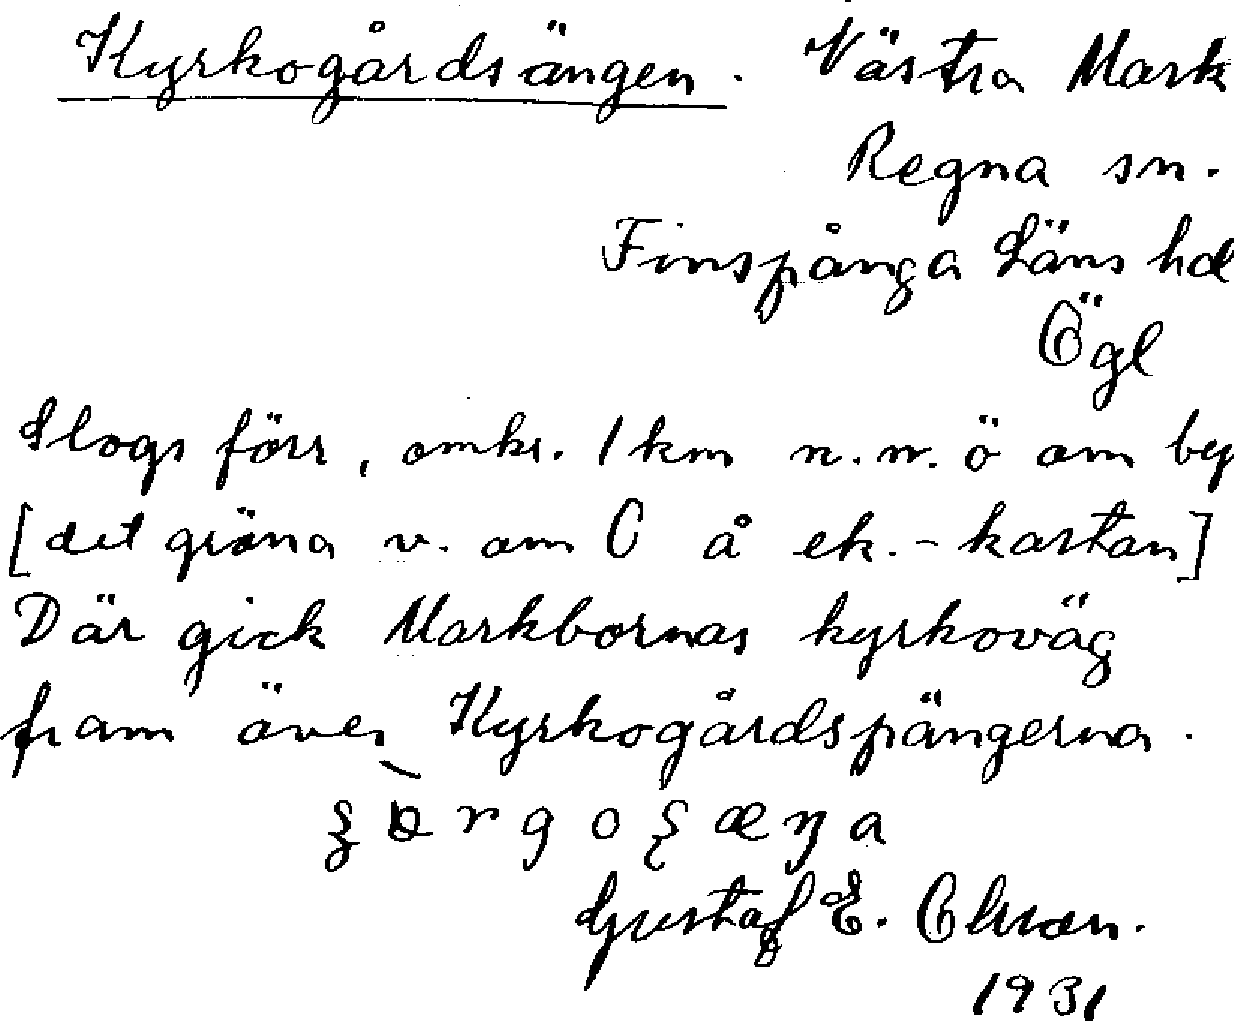 Kyrkogårdsängen. Västra Mark
Regna sn.
Finspånga Läns hd
Ögl
Slogs förr, omkr. 1 km n.n.ö om by
[det gröna v. om O å ek.-kartan]
Där gick Markbornas kyrkoväg
fram över Kyrkogårdspängerna.
Gustaf E.
1931